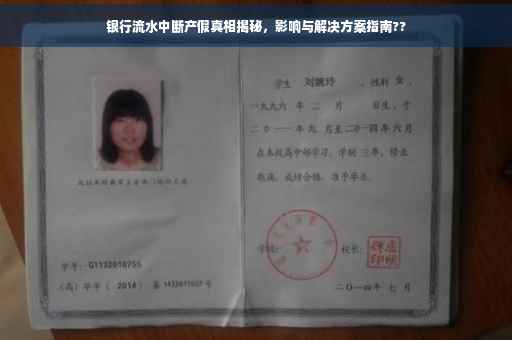 银行流水中断产假真相揭秘，影响与解决方案指南??
学生 刘婉玲 ，性别 女 ，
一九九六 年 二 月 日生，于
二0一一年九 月至二0一四年 六 月
在本校高中部学习，学制 三年，修业
期满，成绩合格，准予毕业。
学号：G1132010755
（高）毕字（ 2014 ）第 1432011037 号
学校：
校长：
二〇一四年 七 月